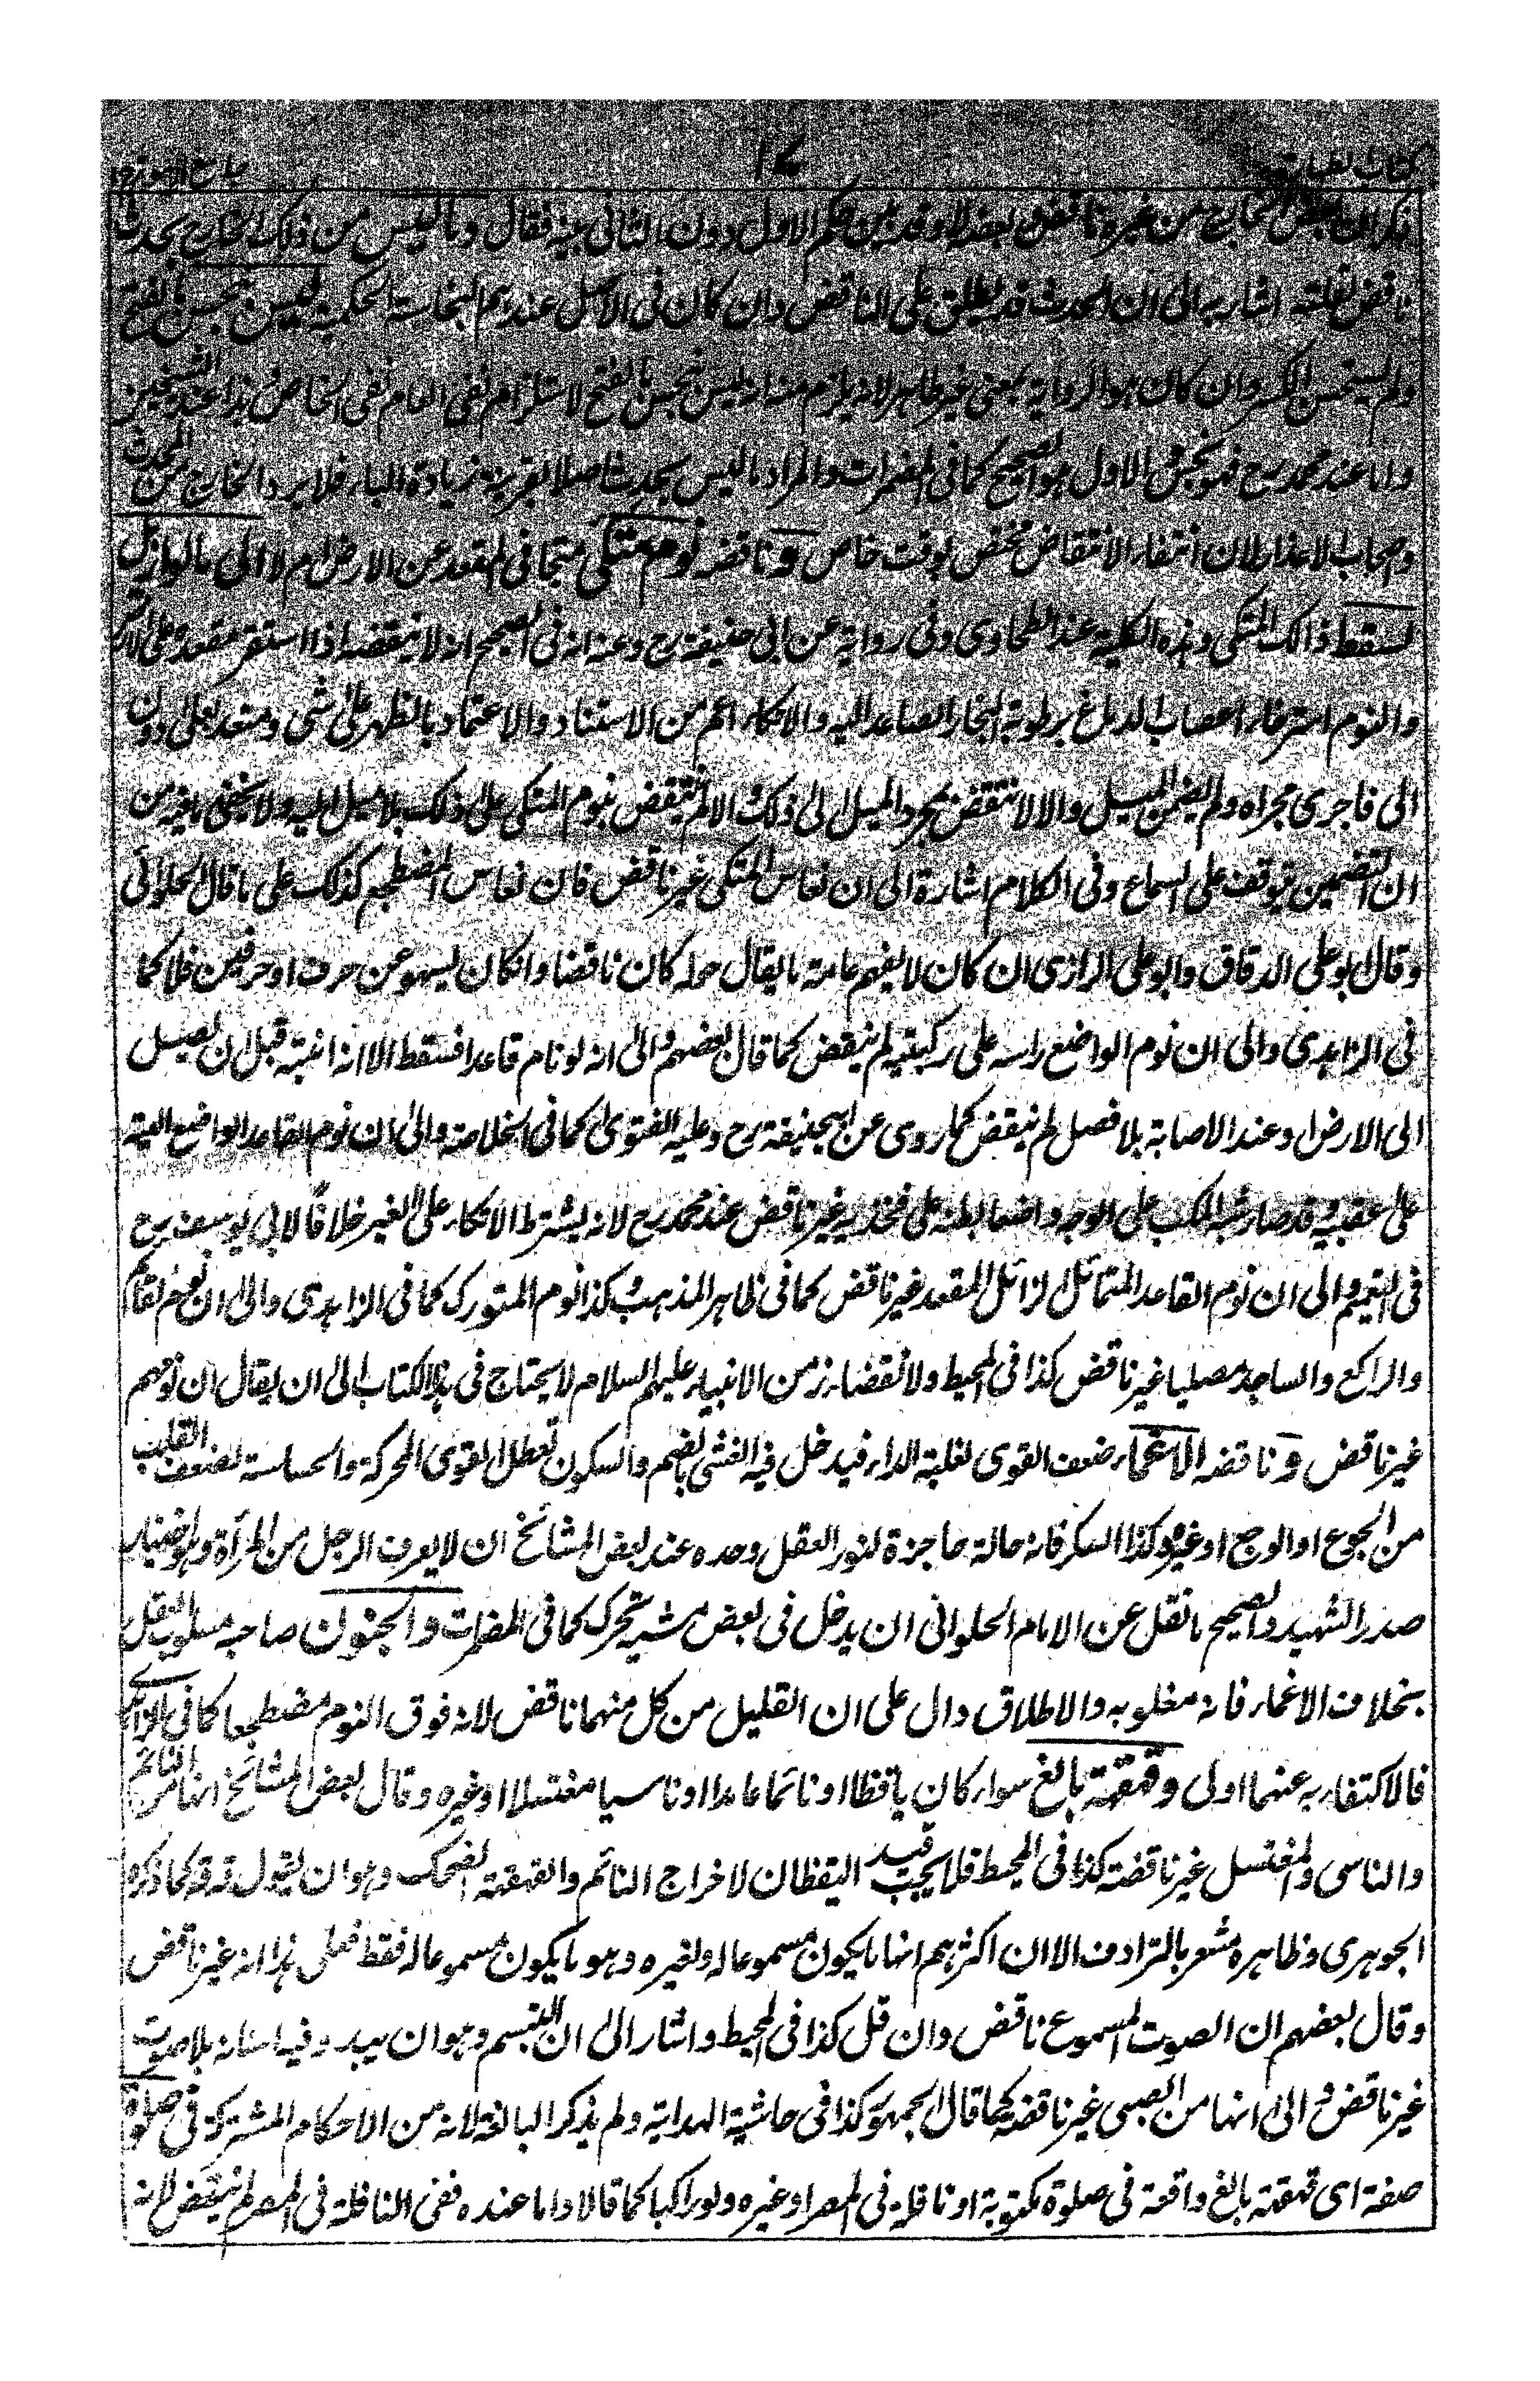 كتاب الطهارة ١٤ جامع الرموز
ذكر ان بعض الخارج من غيره ناقض وبعضه لا وقد بين حكم الاول دون الثاني بينه فقال وما ليس من ذلك الخارج بحدث
ناقض لقلته اشار به الى ان الحدث قد يطلق على الناقض وان كان في الاصل عندهم النجاسة الحكمية ليس بنجس بالفتح
ولم يستحسن الكسر وان كان هو الرواية بمعنى غير طاهر لانه يلزم منه انه ليس بنجس بالفتح لاستلزام نفى العام نفى الخاص وهذا عند الشيخين
واما عند محمد رح فنجس والاول هو الصحيح كما في المضمرات والمراد ما ليس بحدث اصلا بقرينة زيادة الباء فلا يرد الخارج من المحدث
واصحاب الاعذار لان انتفاء الانتقاض مختص بوقت خاص وناقضه نوم متكئ متجافى المقعد عن الارض ام لا الى ما لو ازيل
لسقط ذالك المتكى وهذه الكلية عند الطحاوى وفى رواية عن ابى حنيفة رح وعنه انه فى الصحيح انه لا ينقضه اذا استقر مقعده على الارض
والنوم استرخاء اعصاب الدماغ برطوبة البخار الصاعد اليه والاتكاء اعم من الاستناد والاعتماد بالظهر على شى ومتعد بعلى دون
الى فاجرى مجراه ولم يضمن الميل والا لانتقض بمجرد الميل الى ذلك والا لم ينتقض بنوم المتكى على ذلك بلا ميل اليه ولا يخفى ما فيه من
ان التضمين يتوقف على السماع وفى الكلام اشارة الى ان نعاس المتكى غير ناقض فان نعاس المضطجع كذلك على ما قال الحلوائى
وقال ابو على الدقاق وابو على الرازى ان كان لا يفهم عامة ما يقال حوله كان ناقضا وان كان يسهو عن حرف او حرفين فلا كما
فى الزاهدى والى ان نوم الواضع راسه على ركبتيه لم ينقض كما قال بعضهم والى انه لو نام قاعدا فسقط الا انه انتبه قبل ان يصيل
الى الارض او عند الاصابة بلا فصل لم ينقض كما روى عن ابيحنيفة رح وعليه الفتوى كما فى الخلاصة والى ان نوم القاعد الواضع اليته
على عقبيه وقد صار شبه المكب على الوجه واضعا بطنه على فخذيه غير ناقض عند محمد رح لانه يشترط الاتكاء على الغير خلافا لابى يوسف رح
فى التيمم والى ان نوم القاعد المتمائل لزائل المقعد غير ناقض كما فى ظاهر المذهب وكذا نوم المتورك كما فى الزاهدى والى ان نوم القائم
والراكع والساجد مصليا غير ناقض كذا فى المحيط ولانقضاء زمن الانبياء عليهم السلام لا يحتاج فى هذا الكتاب الى ان يقال ان نومهم
غير ناقض وناقضه الاغماء ضعف القوى لغلبة الداء فيدخل فيه الغشى بالضم والسكون تعطل القوى المحركة والحساسة لضعف القلب
من الجوع او الوجع او غيره وكذا السكر فانه حالة حاجزة لنور العقل وحده عند بعض المشائخ ان لا يعرف الرجل من المرأة وهو اختيار
صدر الشهيد والصحيح ما نقل عن الامام الحلوانى ان يدخل فى بعض مشيه تحرك كما فى المضمرات والجنون صاحبه مسلوب العقل
بخلاف الاغماء فانه مغلوبه والاطلاق دال على ان القليل من كل منهما ناقض لانه فوق النوم مضطجعا كما فى الزاهدى
فالاكتفاء به عنهما اولى وقهقهة بالغ سواء كان ياقظا او نائما عامدا او ناسيا مغتسلا او غيره وقال بعض المشائخ انها من النائم
والناسى والمغتسل غير ناقضة كذا فى المحيط فلا يجب قيد اليقظان لاخراج النائم والقهقهة الضحك وهو ان يقول قه قه كما ذكره
الجوهرى وظاهره مشعر بالترادف الا ان اكثرهم انها ما يكون مسموعا له ولغيره وهو ما يكون مسموعا له فقط فعلى هذا انه غير ناقض
وقال بعضهم ان الصوت المسموع ناقض وان قل كذا فى المحيط واشار الى ان التبسم وهو ان يبدو فيه اسنانه بلا صوت
غير ناقض والى انها من الصبى غير ناقضة كما قال الجمهور كذا فى حاشية الهداية ولم يذكر البالغة لانه من الاحكام المشتركة فى صلوة
صفة اى قهقهة بالغ واقعة فى صلوة مكتوبة او نافلة فى المصر او غيره ولو راكبا كما قالا واما عنده ففى النافلة فى المصر لم ينتقض لانه